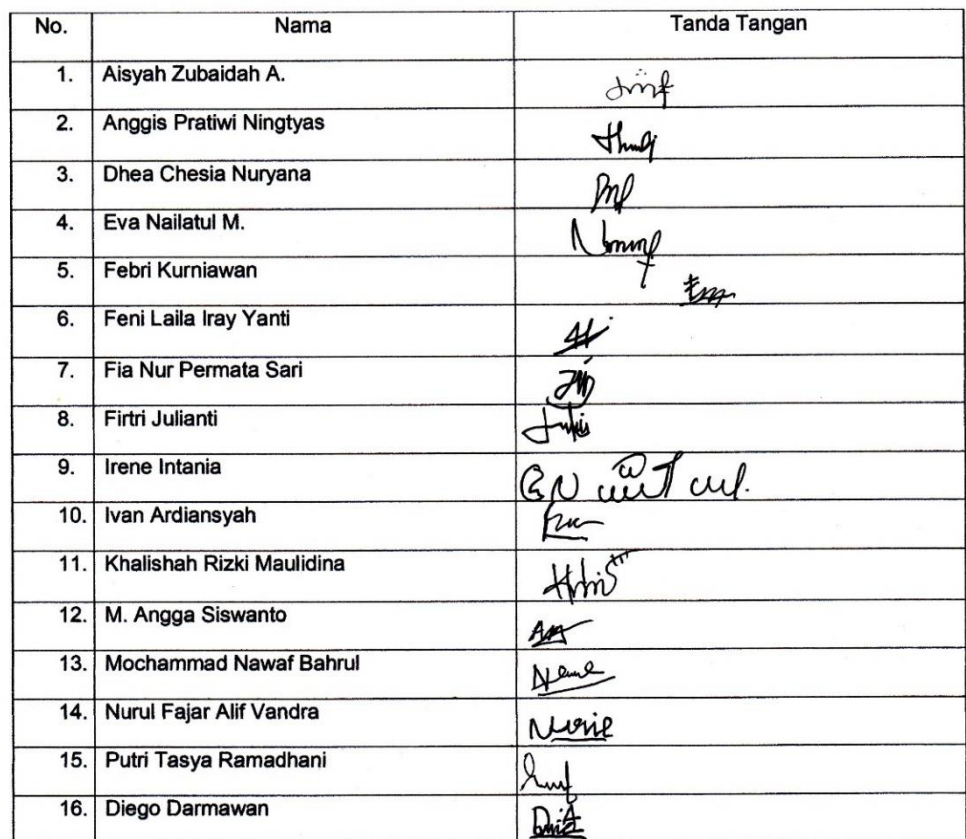 No. Nama Tanda Tangan
1. Aisyah Zubaidah A.
2. Anggis Pratiwi Ningtyas
3. Dhea Chesia Nuryana
4. Eva Nailatul M.
5. Febri Kurniawan
6. Feni Laila Iray Yanti
7. Fia Nur Permata Sari
8. Firtri Julianti
9. Irene Intania
10. Ivan Ardiansyah
11. Khalishah Rizki Maulidina
12. M. Angga Siswanto
13. Mochammad Nawaf Bahrul
14. Nurul Fajar Alif Vandra
15. Putri Tasya Ramadhani
16. Diego Darmawan